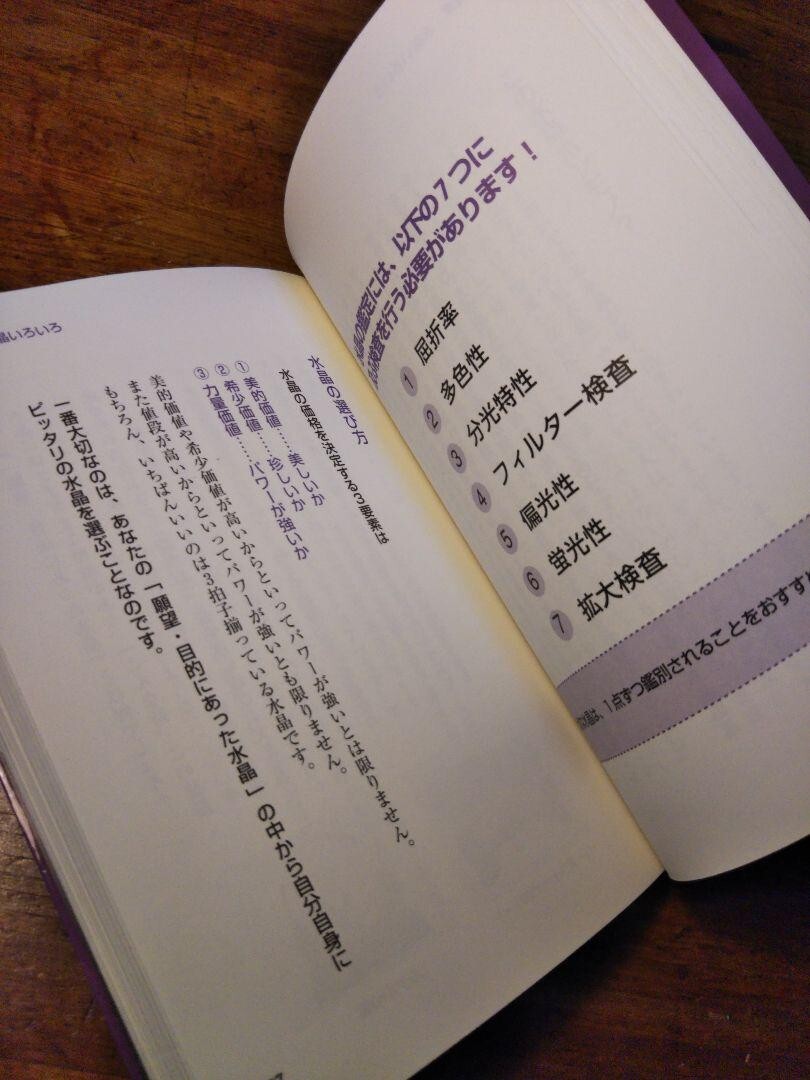 以下の7つに
鑑定には、
検査を行う必要があります！
① 屈折率
② 多色性
③ 分光特性
④ フィルター検査
⑤ 偏光性
⑥ 蛍光性
⑦ 拡大検査
1点ずつ鑑別されることをおすすめ
晶いろいろ
水晶の選び方
水晶の価格を決定する3要素は
① 美的価値……美しいか
② 希少価値……珍しいか
③ 力量価値……パワーが強いか
美的価値や希少価値が高いからといってパワーが強いとは限りません。
また値段が高いからといってパワーが強いとも限りません。
もちろん、いちばんいいのは3拍子揃っている水晶です。
一番大切なのは、あなたの「願望・目的にあった水晶」の中から自分自身に
ピッタリの水晶を選ぶことなのです。